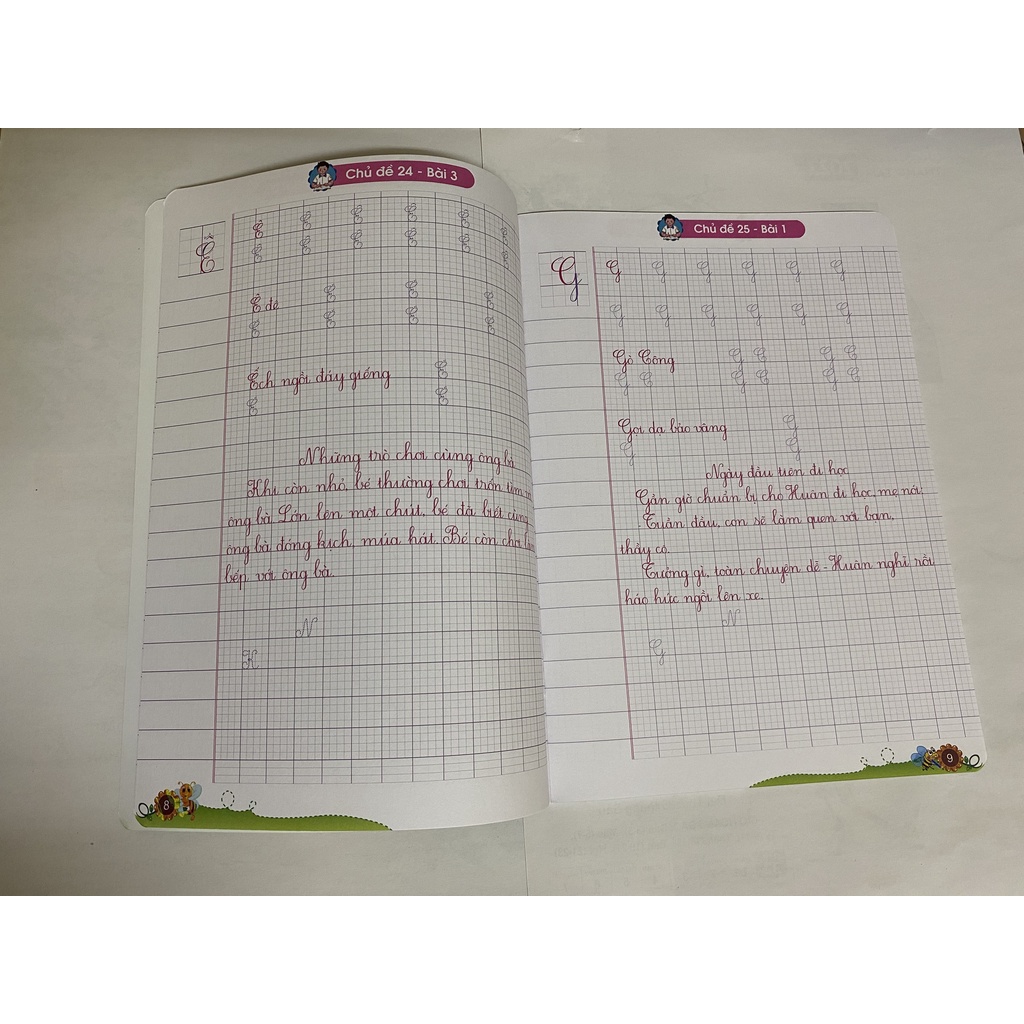 Chủ đề 24 - Bài 3
Ê
Ê Ê Ê Ê Ê Ê
Ê Ê Ê Ê Ê Ê
Ê đê Ê Ê Ê
Ê Ê Ê Ê
Ếch ngồi đáy giếng Ê
Ê Ê
Những trò chơi cùng ông bà
Khi còn nhỏ, bé thường chơi trốn tìm
ông bà. Lớn lên một chút, bé đã biết cùng
ông bà đóng kịch, múa hát. Bé còn chơi
bếp với ông bà.
N
K
8
Chủ đề 25 - Bài 1
G
G G G G G G
G G G G G G
Gò Công G C G C
G C G C G C
Gọi dạ bảo vâng G
G G
Ngày đầu tiên đi học
Gần giờ chuẩn bị cho Huân đi học, mẹ nói:
- Tuần đầu, con sẽ làm quen với bạn,
thầy cô.
Tưởng gì, toàn chuyện dễ - Huân nghĩ rồi
háo hức ngồi lên xe.
N
G
9